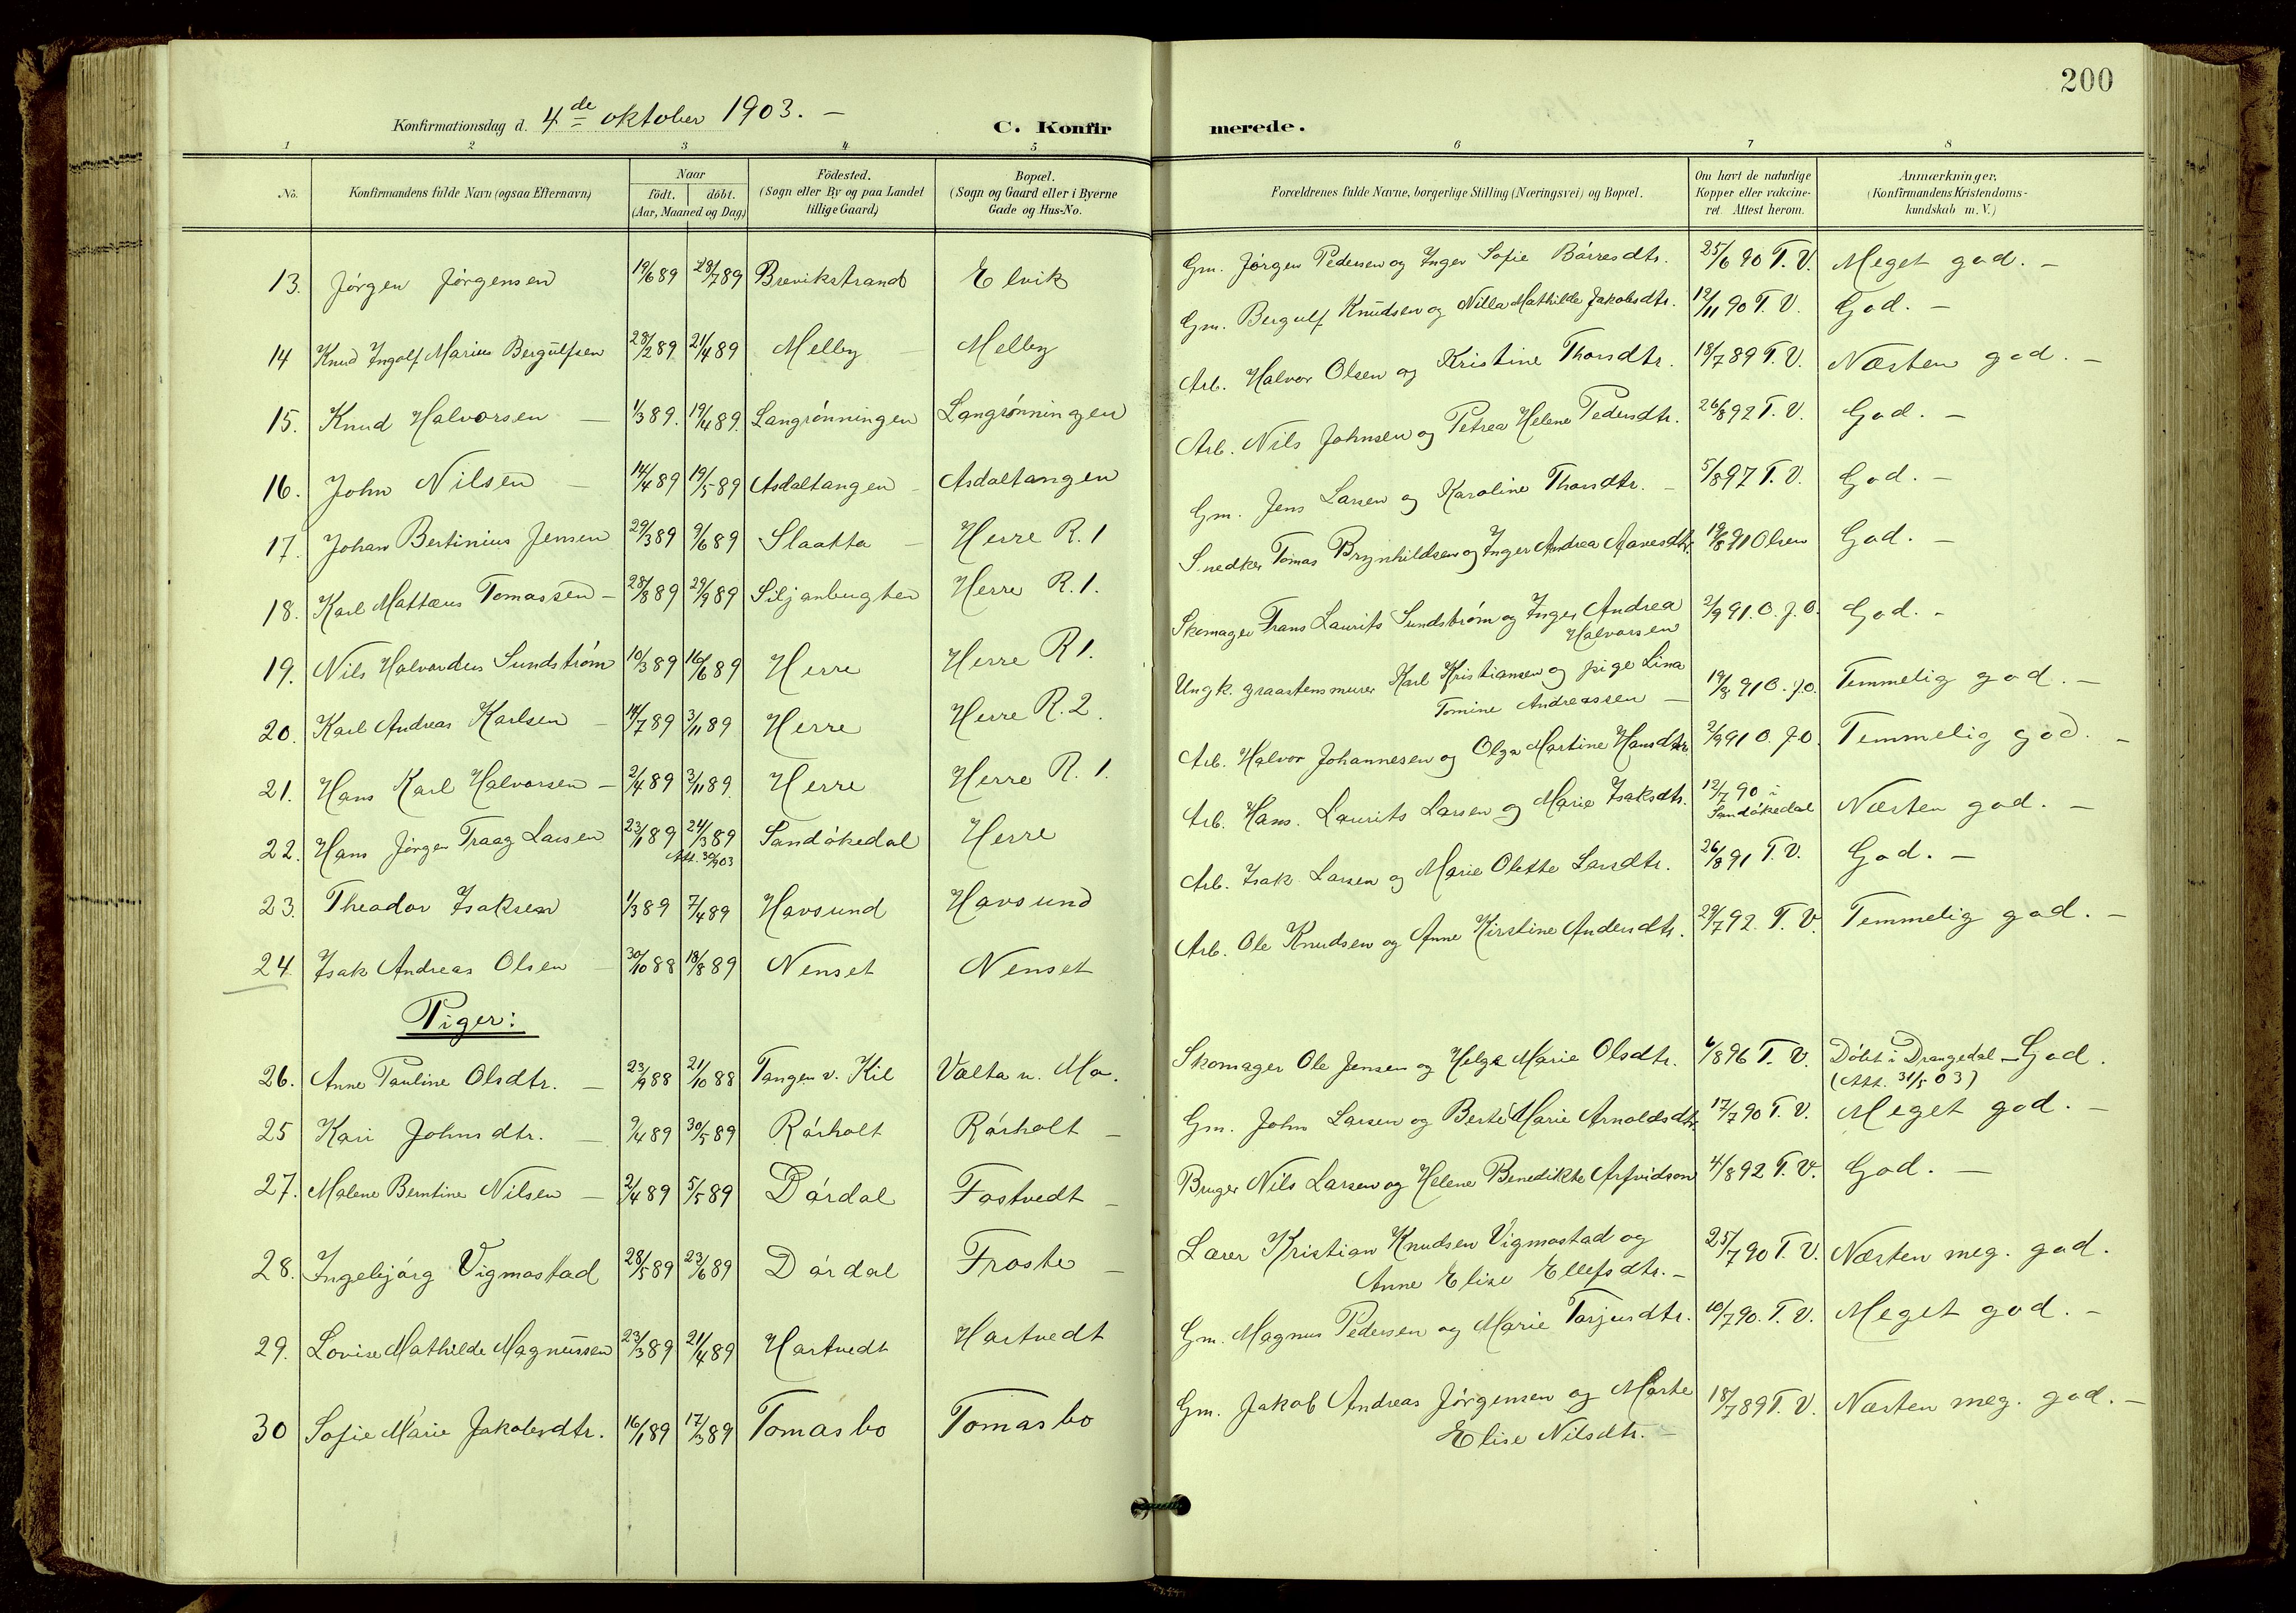 200
Konfirmationsdag d. 4de oktober 1903. —
C. Konfirmerede.
1 2 3 4 5 6 7 8
No. Konfirmandens fulde Navn (ogsaa Efternavn) Naar født. døbt. (Aar, Maaned og Dag) Fødested. (Sogn eller By og paa Landet tillige Gaard) Bopæl. (Sogn og Gaard eller i Byerne Gade og Hus-No. Forældrenes fulde Navne, borgerlige Stilling (Næringsvei) og Bopæl. Om havt de naturlige Kopper eller vakcineret. Attest herom. Anmærkninger, (Konfirmandens Kristendomskundskab m. V.)
13. Jørgen Jørgensen 19/6 89 28/7 89 Brevikstrand Elvik Gm. Jørgen Pedersen og Inger Sofie Børresdtr. 25/6 90 T. V. Meget god. —
14 Knud Ingolf Marius Bergulfsen 28/2 89 21/4 89 Melby Melby Gm. Bergulf Knudsen og Nilla Mathilde Jakobsdtr. 12/11 90 T. V. God. —
15. Knud Halvorsen — 1/3 89. 19/4 89. Langrønningen Langrønningen Arb. Halvor Olsen og Kristine Thorsdtr. 18/7 89 T. V. Næsten god. —
16. John Nilsen — 14/4 89 19/5 89 Asdaltangen — Asdaltangen Arb. Nils Johnsen og Petrea Helene Pedersdtr. 26/8 92 T. V. God. —
17. Johan Bertinius Jensen 29/3 89 9/6 89 Slaatta — Herre R. 1 Gm. Jens Larsen og Karoline Thorsdtr. — 5/8 97 T. V. God. —
18. Karl Mattæus Tomassen — 28/8 89 29/9 89 Siljanbugten Herre R. 1. Snedker Tomas Brynhildsen og Inger Andrea Aanesdtr. 19/8 91 Olsen God. —
19. Nils Halvardus Sundstrøm 10/3 89 16/6 89 Herre Herre R 1. Skomager Frans Laurits Sundstrøm og Inger Andrea Halvorsen 2/9 91. O. J. O. God. -
20. Karl Andreas Karlsen — 14/7 89 3/11 89 Herre Herre R. 2. Ungk. graastensmurer Karl Kristiansen og pige Lina Tomine Andreassen — 19/8 91 O. J. O. Temmelig god. —
21. Hans Karl Halvorsen — 2/4 89 3/11 89. Herre Herre R. 1. Arb. Halvor Johannesen og Olga Martine Hansdtr 2/9 91 O. J. O. Temmelig god. —
22. Hans Jørgen Traag Larsen 23/1 89 24/3 89 Att. 30/9 03 Sandøkedal Herre Arb. Hans Laurits Larsen og Marie Isaksdtr. 12/7 90 i Sandøkedal Næsten god. —
23. Theodor Isaksen 1/3 89 7/4 89 Havsund Havsund Arb. Isak Larsen og Marie Olette Larsdtr. 26/8 91 T. V. God. —
24. Isak Andreas Olsen — 30/10 88 18/8 89 Nenset Nenset Arb. Ole Knudsen og Anne Kirstine Andersdtr. 29/7 92. T. V. Temmelig god. —
Piger:
26. Anne Pauline Olsdtr. — 23/9 88 21/10 88 Tangen v. Kil Valta u. Mo. Skomager Ole Jensen og Helge Marie Olsdtr. 6/8 96 T. V. Døbt i Drangedal — God. (Att. 31/5 03)
25 Kari Johnsdtr. — 9/4 89 30/5 89 Rørholt Rørholt — Gm. John Larsen og Berte Marie Arnoldsdtr. 17/7 90 T. V. Meget god. —
27. Malene Berntine Nilsen — 2/4 89 5/5 89 Dørdal Fostvedt — Bruger Nils Larsen og Helene Benedikte Arfvidson 4/8 92 T. V. God. —
28. Ingebjørg Vigmostad 28/5 89 23/6 89 Dørdal Froste — Lærer Kristian Knudsen Vigmostad og Anne Elise Ellefsdtr. — 25/7 90 T. V. Næsten meg. god.
29. Lovise Mathilde Magnussen 23/3 89 21/4 89 Hartvedt Hartvedt Gm. Magnus Pedersen og Marie Tarjusdtr. 10/7 90. T. V. Meget god. —
30 Sofie Marie Jakobsdtr. 16/1 89 17/3 89 Tomasbo Tomasbo Gm. Jakob Andreas Jørgensen og Marte Elise Nilsdtr. — 18/7 89 T. V. Næsten meg. god. —